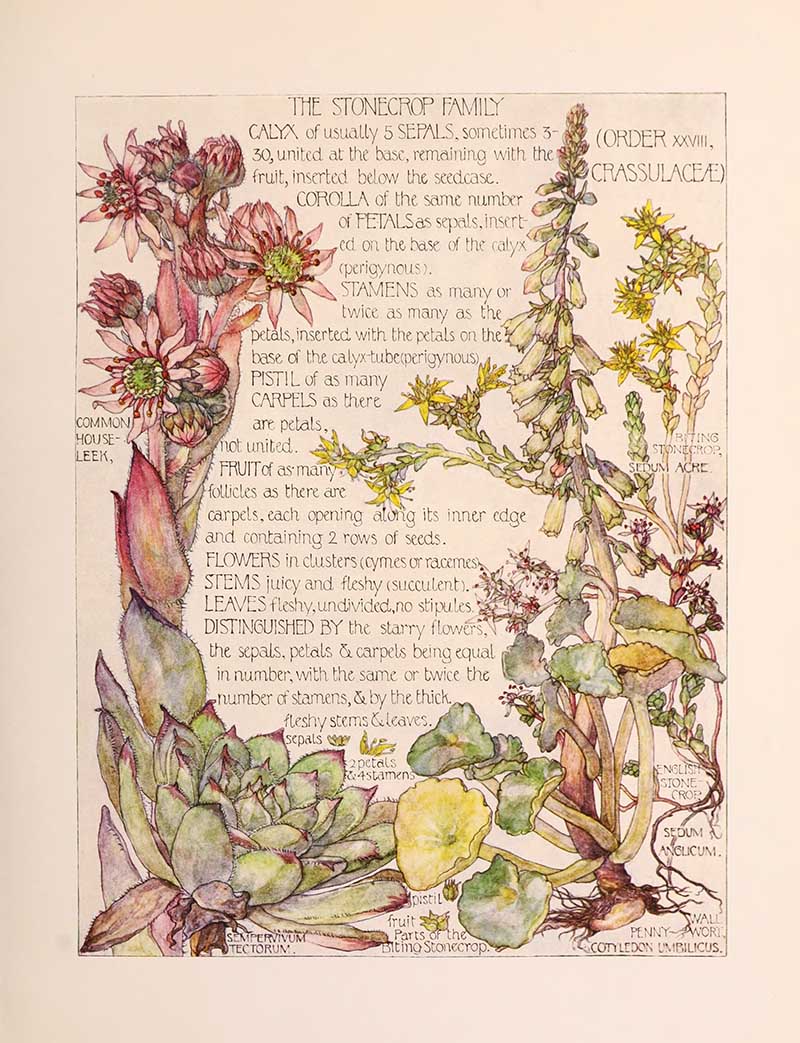 THE STONECROP FAMILY
(ORDER XXVIII,
CRASSULACEÆ)
CALYX of usually 5 SEPALS, sometimes 3-
30, united at the base, remaining with the
fruit, inserted below the seedcase.
COROLLA of the same number
of PETALS as sepals, insert-
ed on the base of the calyx
(perigynous).
STAMENS as many or
twice as many as the
petals, inserted with the petals on the
base of the calyx-tube (perigynous)
PISTIL of as many
CARPELS as there
are petals,
not united.
FRUIT of as many
follicles as there are
carpels, each opening along its inner edge
and containing 2 rows of seeds.
FLOWERS in clusters (cymes or racemes)
STEMS juicy and fleshy (succulent).
LEAVES fleshy, undivided, no stipules.
DISTINGUISHED BY the starry flowers,
the sepals, petals & carpels being equal
in number, with the same or twice the
number of stamens, & by the thick
fleshy stems & leaves.
sepals
2 petals
& 4 stamens
pistil
fruit
Parts of the
Biting Stonecrop.
COMMON
HOUSE-
LEEK,
SEMPERVIVUM
TECTORUM.
BITING
STONECROP,
SEDUM ACRE.
ENGLISH
STONE-
CROP,
SEDUM
ANGLICUM.
WALL
PENNY-WORT,
COTYLEDON UMBILICUS.